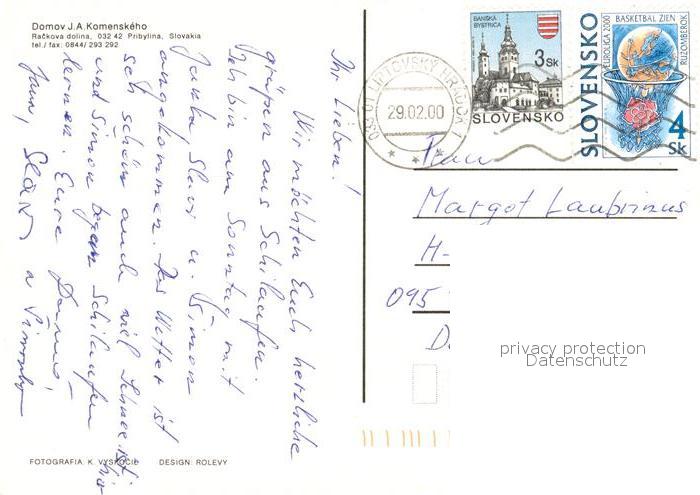 Domov J. A. Komenského
Račkova dolina, 032 42 Pribylina, Slovakia
tel./ fax: 0844/ 293 292
Ihr Lieben!
Wir möchten Euch herzliche
grüßen aus Schilaufen.
Ich bin am Sonntag mit
Janka, Slavi u. Simon
angekommen. Das Wetter ist
sch schön auch viel Schnee ist
und Simon began Schilaufen
lernen. Eure
Janna, Slavi a Simonko
FOTOGRAFIA: K. VYSKOČIL DESIGN: ROLEVY
BANSKÁ
BYSTRICA
3 Sk
SLOVENSKO
SLOVENSKO
EUROLIGA 2000
BASKETBAL ŽIEN
RUŽOMBEROK
4
Sk
LIPTOVSKÝ HRÁDOK 1
29.02.00
Margot Laubrinus
H-
095
D
privacy protection
Datenschutz